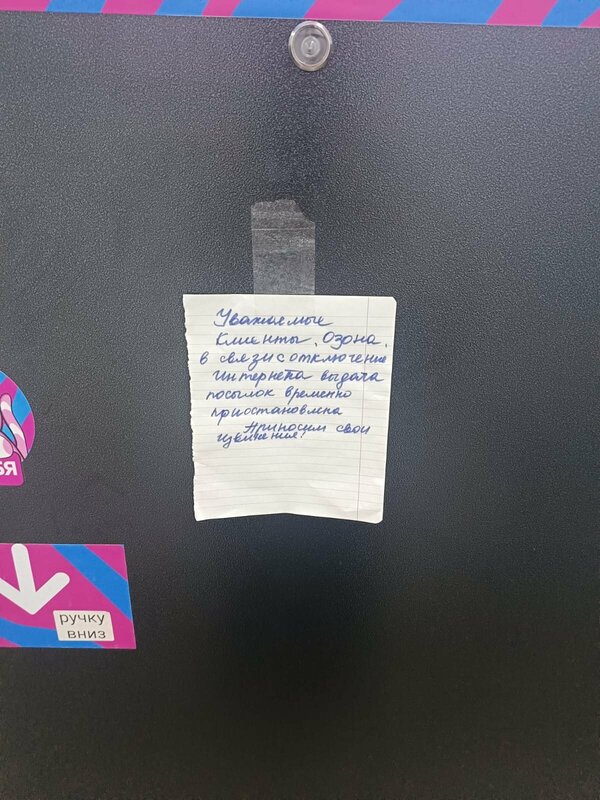 Уважаемые
клиенты, Озона,
в связи с отключение
интернета выдача
посылок временно
приостановлена
Приносим свои
извинения!
Я
ручку
вниз